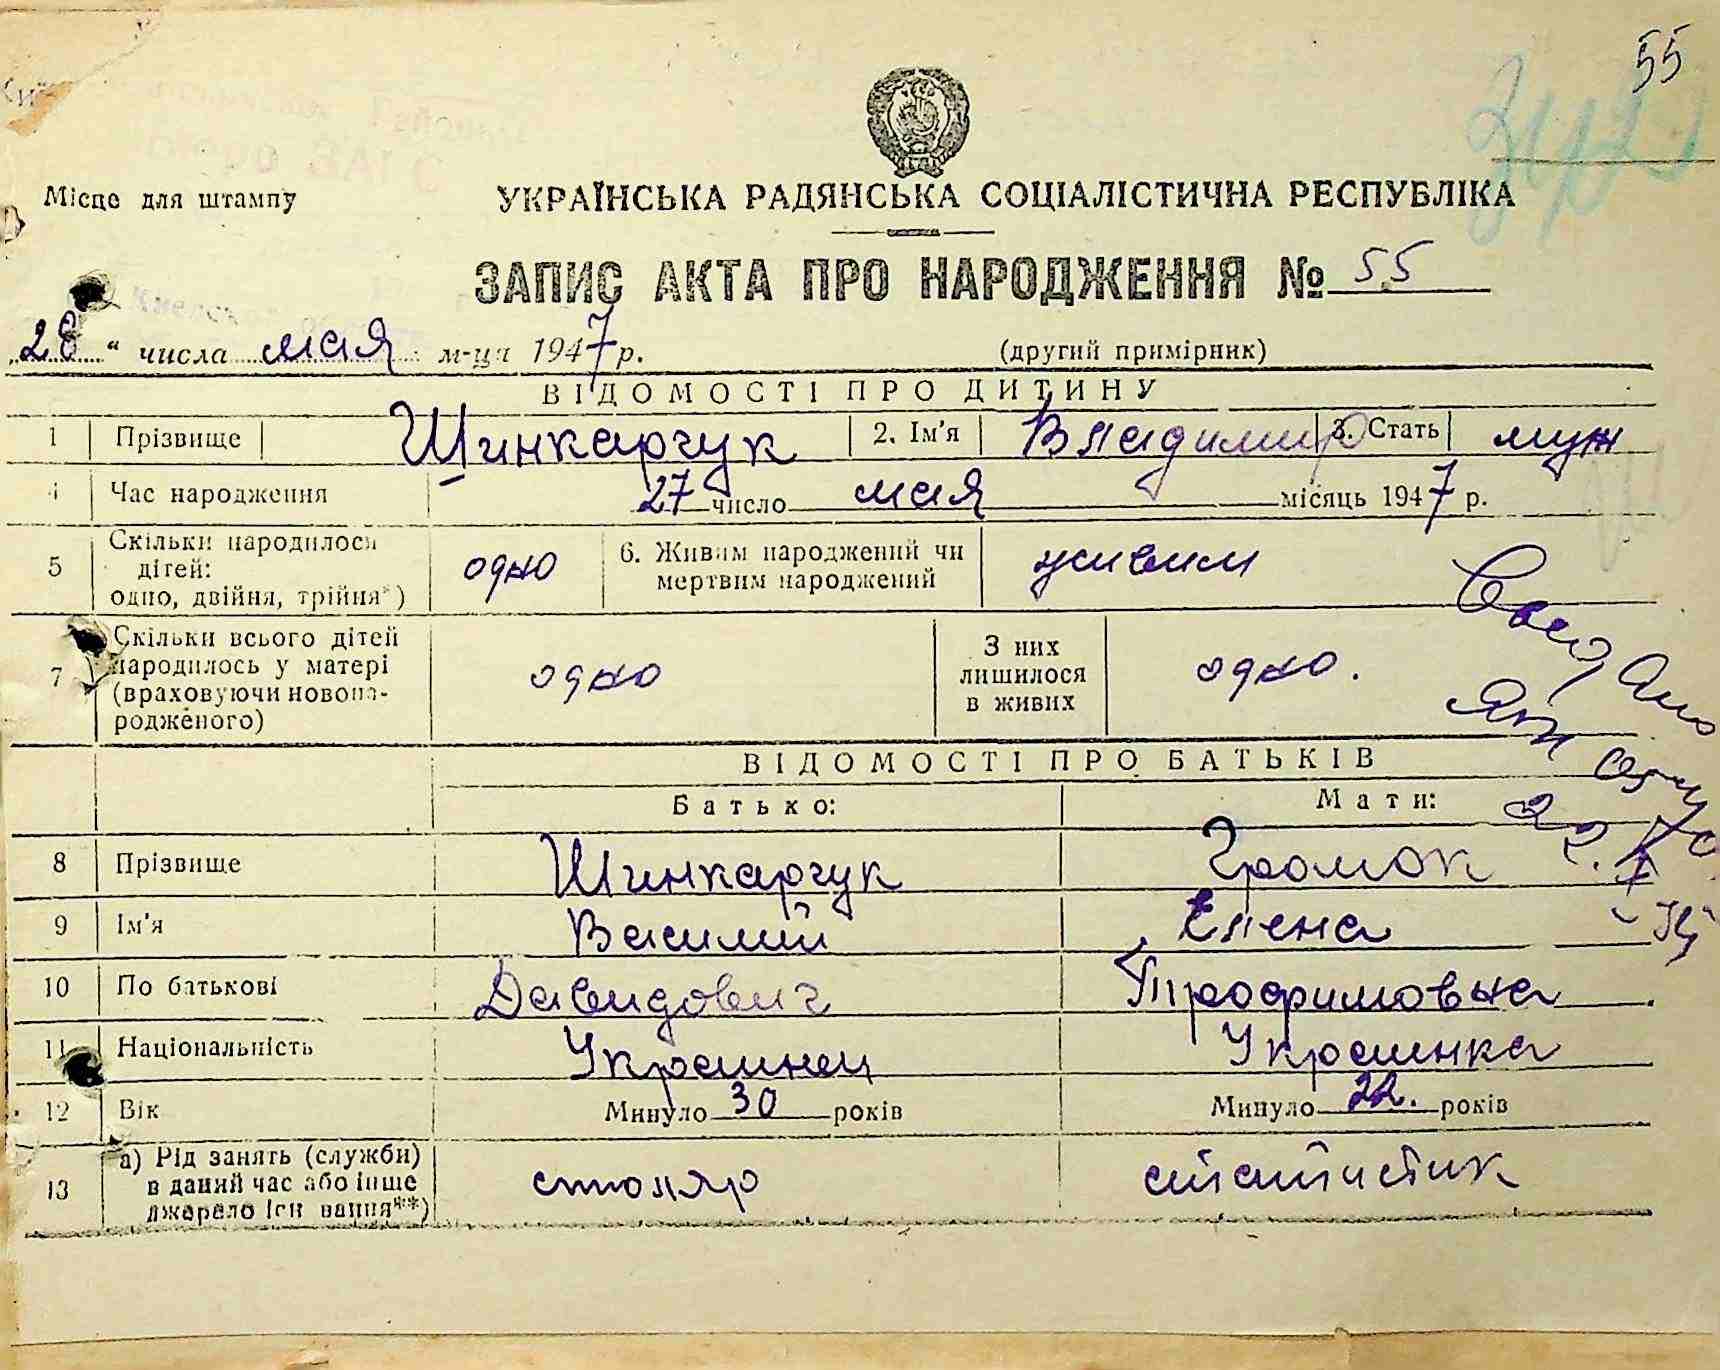 55
Місце для штампу
УКРАЇНСЬКА РАДЯНСЬКА СОЦІАЛІСТИЧНА РЕСПУБЛІКА
ЗАПИС АКТА ПРО НАРОДЖЕННЯ № 55
„28“ числа мая м-ця 1947 р. (другий примірник)
ВІДОМОСТІ ПРО ДИТИНУ
1 Прізвище Шинкарчук 2. Ім'я Владимир 3. Стать муж
4 Час народження 27 число мая місяць 1947 р.
5 Скільки народилося дітей: одно, двійня, трійня*) одно 6. Живим народжений чи мертвим народжений живим
7 Скільки всього дітей народилось у матері (враховуючи новона-родженого) одно З них лишилося в живих одно.
ВІДОМОСТІ ПРО БАТЬКІВ
Батько: Мати:
8 Прізвище Шинкарчук Громок
9 Ім'я Василий Елена
10 По батькові Давидович Трофимовна
11 Національність Украинец Украинка
12 Вік Минуло 30 років Минуло 22. років
13 а) Рід занять (служби) в даний час або інше джерело існування**) столяр статистик